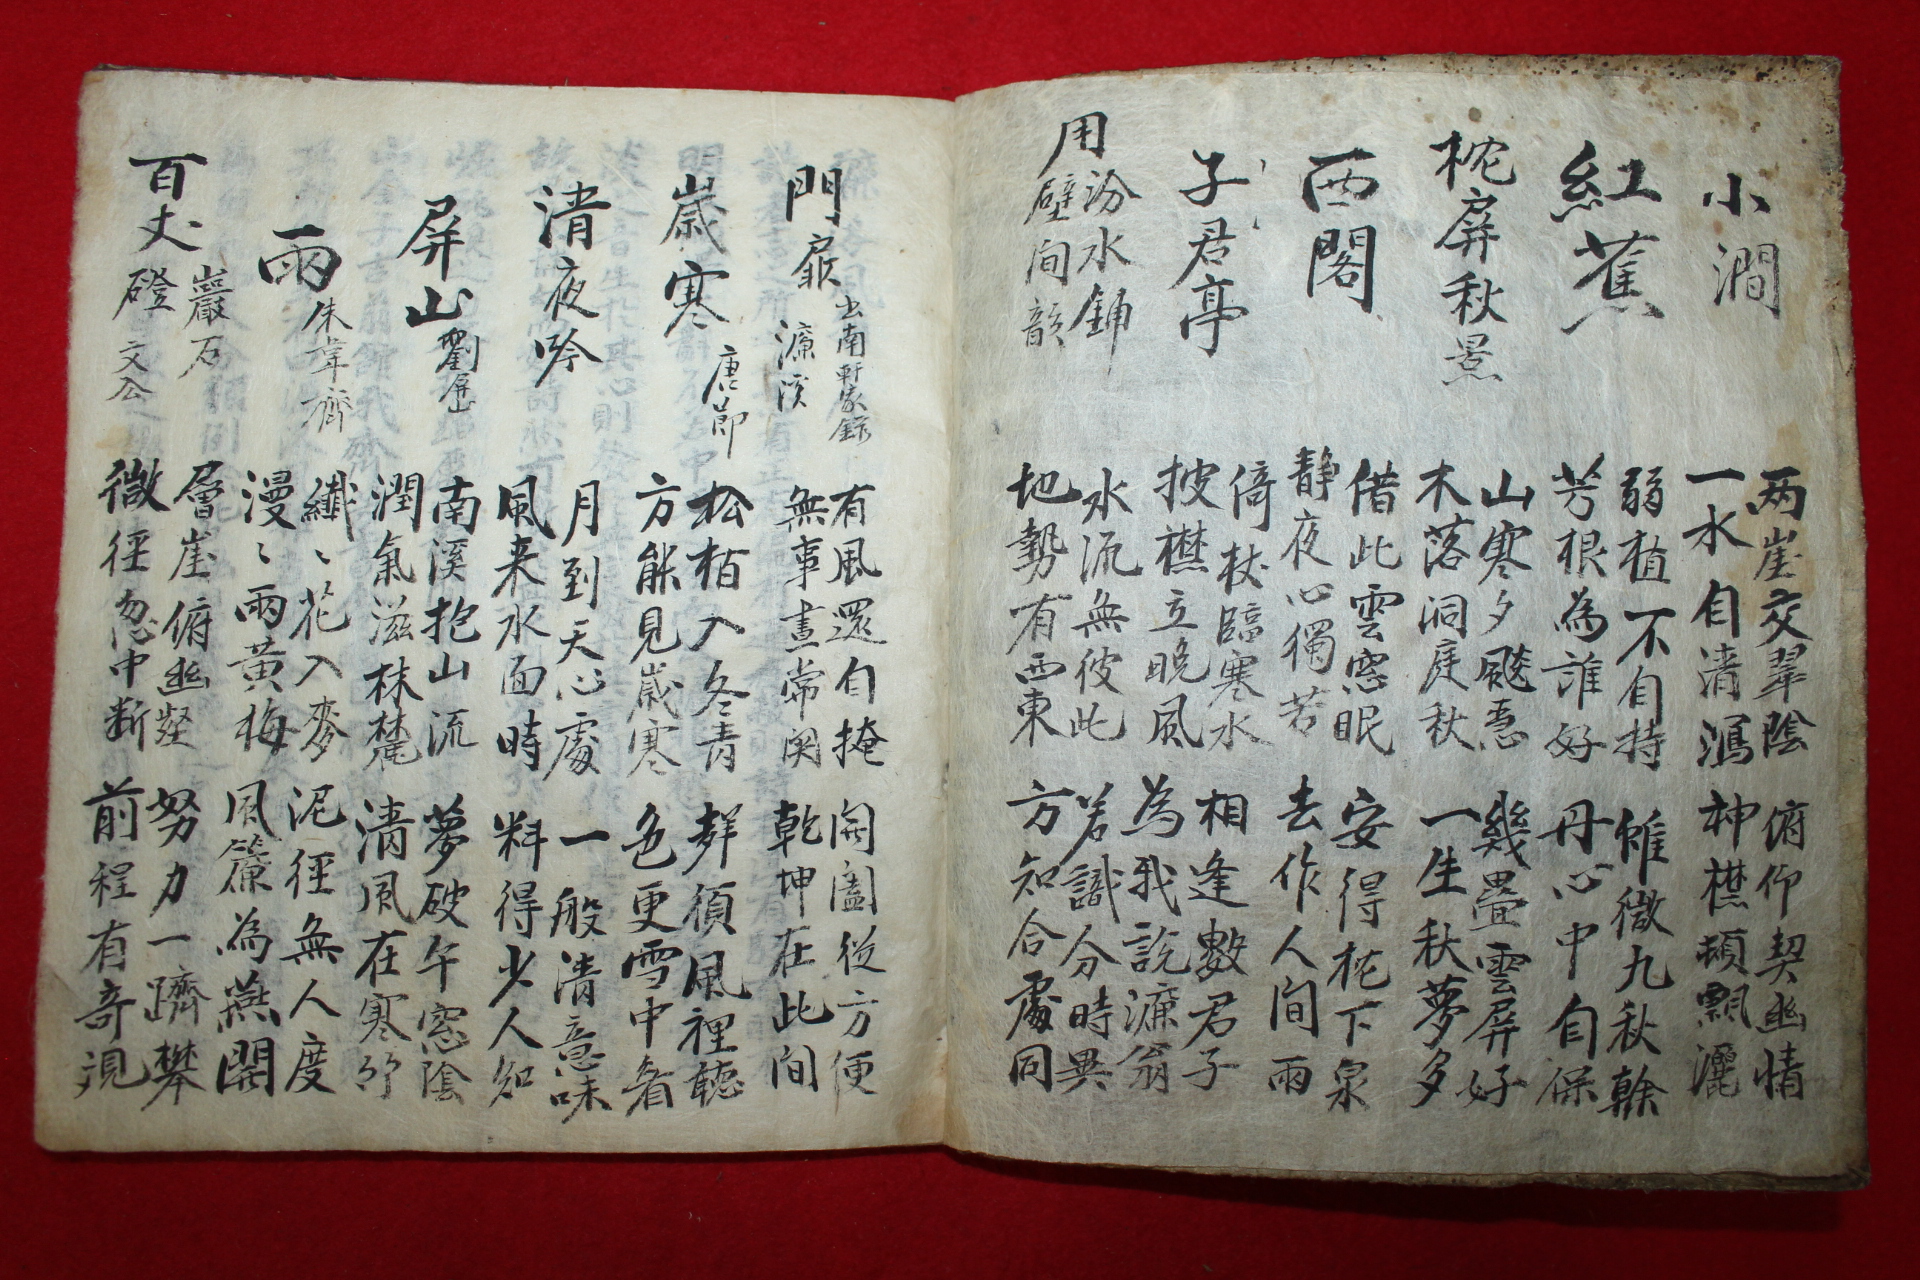 小澗
兩崖交翠陰 俯仰契幽情
一水自清瀉 神襟頓飄灑
紅蕉
弱植不自持 惟微九秋榦
芳根為誰好 丹心中自保
枕屏秋景
山寒夕飈急 幾疊雲屏好
木落洞庭秋 一生秋夢多
西閣
借此雲窓眠 安得枕下泉
靜夜心獨苦 去作人間雨
子君亭
倚杖臨寒水 相逢數君子
披襟立晚風 為我說濂翁
用汾水鋪
壁間韻
水流無彼此 若識分時異
地勢有西東 方知合處同
門扉 出南軒家錄
濂溪
有風還自掩 開闔從方便
無事晝常関 乾坤在此间
歲寒 康節
松栢入冬青 群須風裡聽
方能見歲寒 色更雪中看
清夜吟
月到天心處 一般清意味
風来水面時 料得少人知
屏山 劉屏山
南溪抱山流 夢破午窓陰
潤氣滋林麓 清風在寒竹
雨 朱韋齋
纖〻花入麥 泥徑無人度
漫〻雨黃梅 風簾為燕開
百丈巖石
磴 文公
層崖俯幽壑 努力一躋攀
微徑忽中斷 前程有奇覌